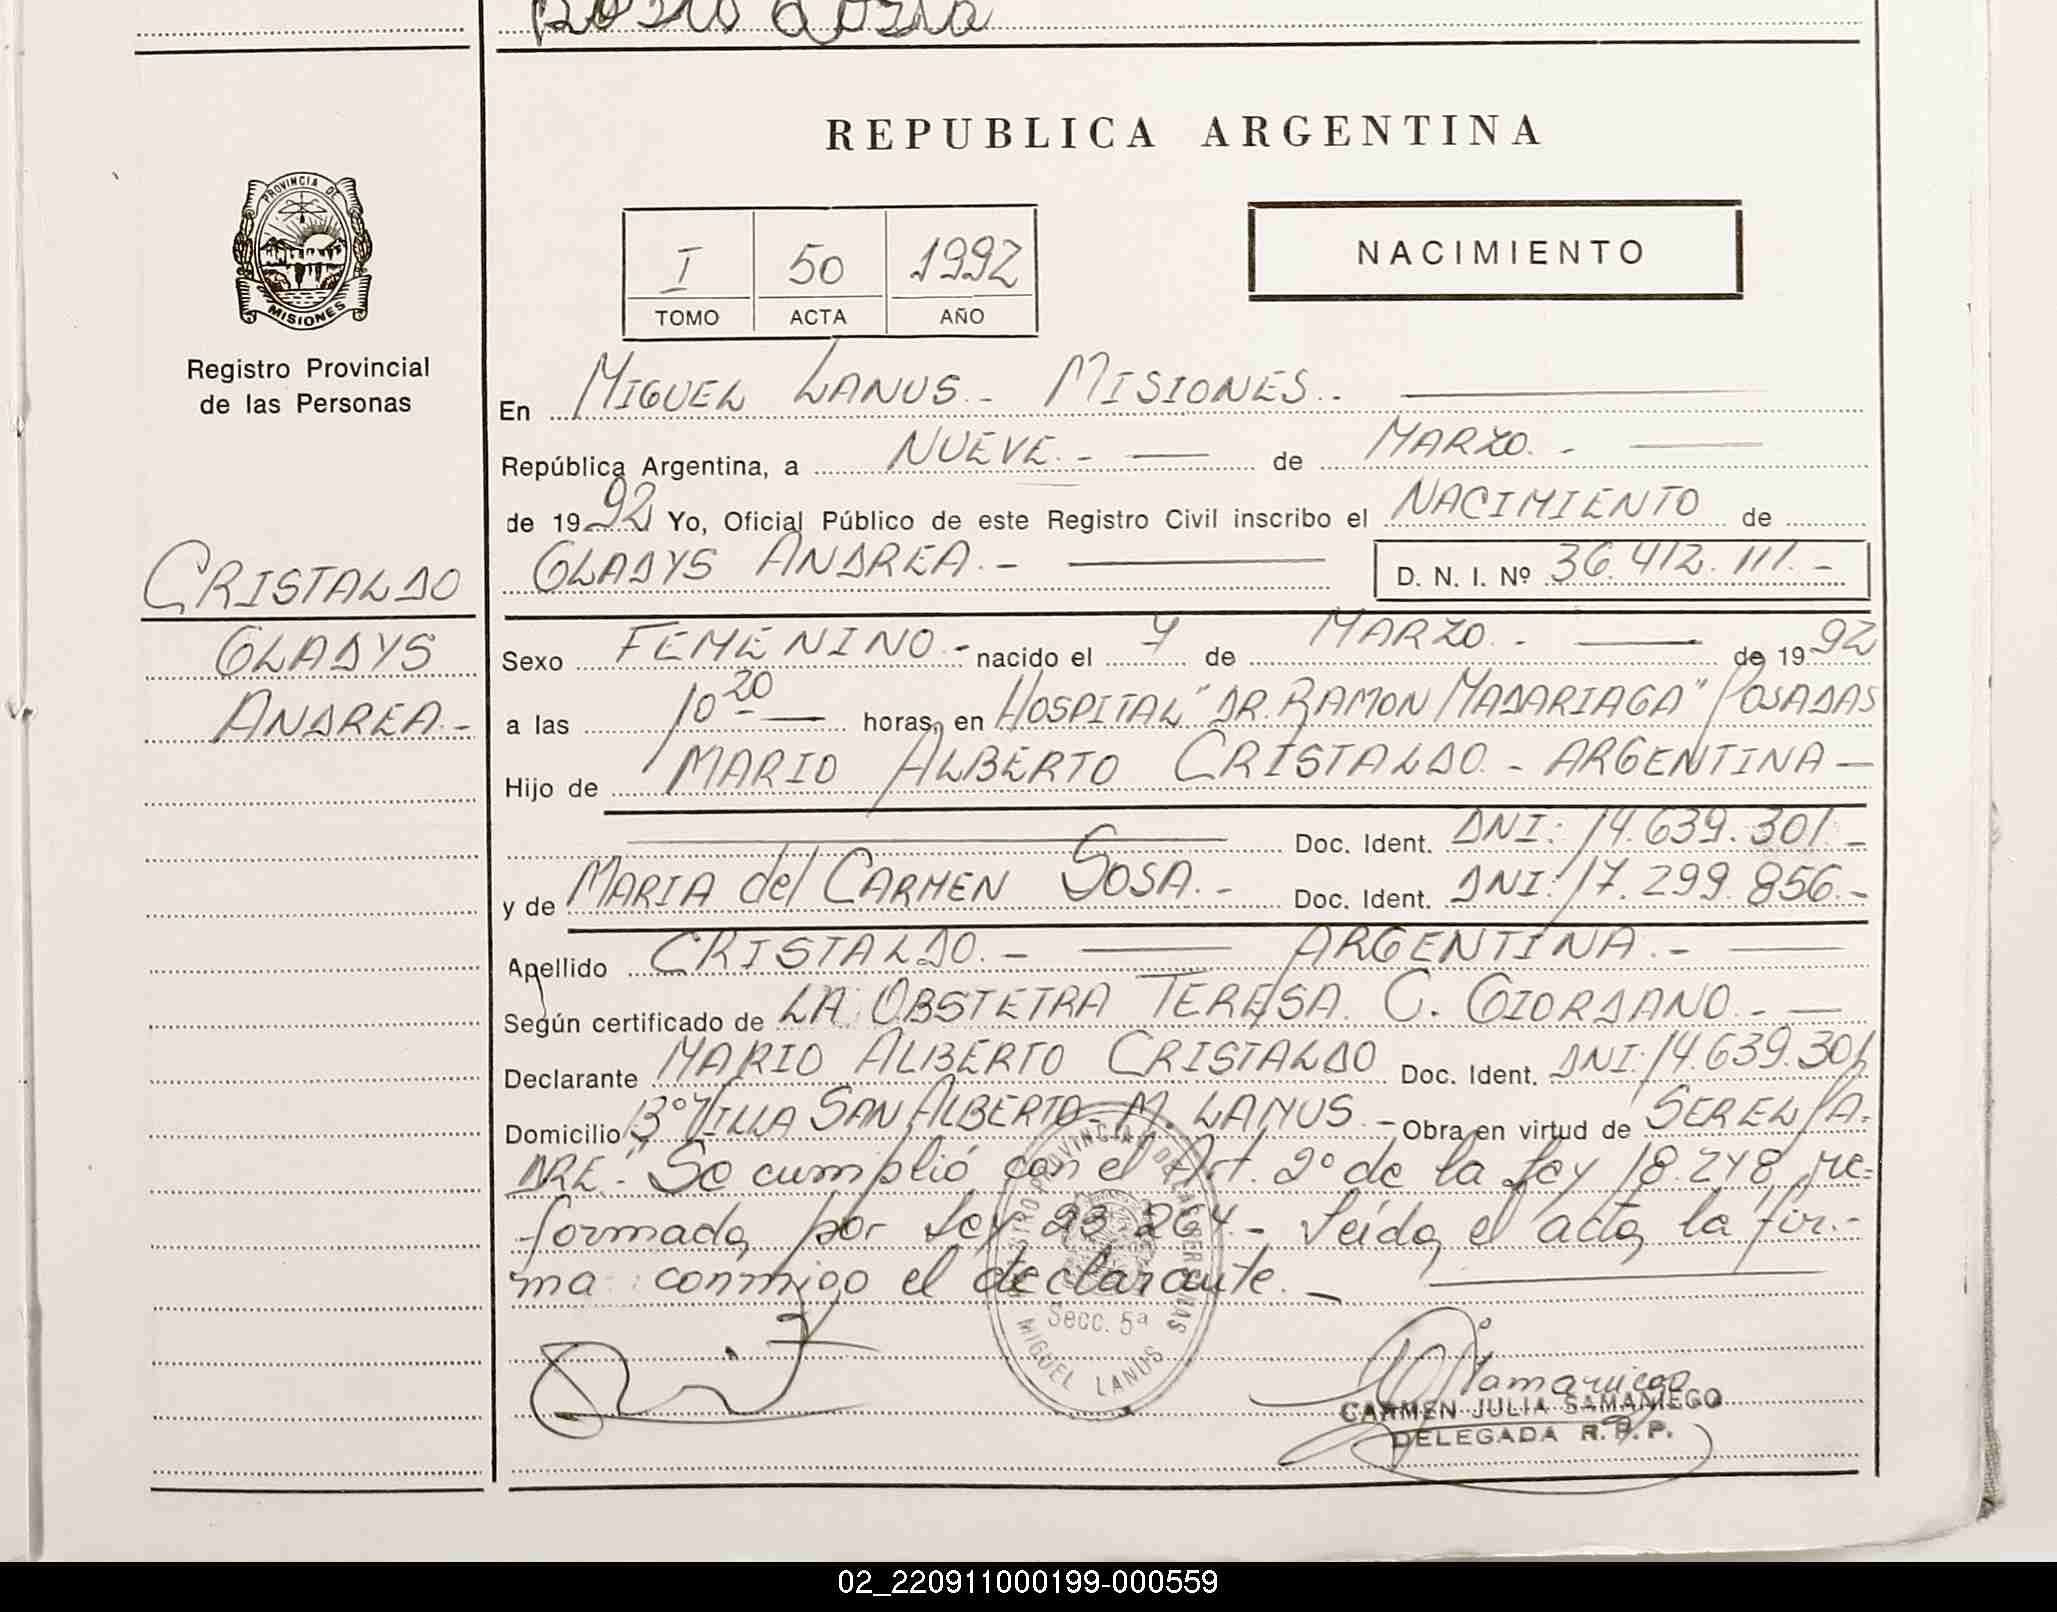 REPUBLICA ARGENTINA
PROVINCIA DE
MISIONES
Registro Provincial
de las Personas
I 50 1992
TOMO ACTA AÑO
NACIMIENTO
En MIGUEL LANUS.- MISIONES.-
República Argentina, a NUEVE.- de MARZO.-
de 1992 Yo, Oficial Público de este Registro Civil inscribo el NACIMIENTO de
GLADYS ANDREA.- D. N. I. Nº 36.412.111.-
CRISTALDO
GLADYS
ANDREA.-
Sexo FEMENINO.- nacido el 7 de MARZO.- de 1992
a las 10 20 horas, en HOSPITAL "DR. RAMON MADARIAGA" POSADAS
Hijo de MARIO ALBERTO CRISTALDO.- ARGENTINA-
Doc. Ident. DNI: 14.639.301.-
y de MARIA del CARMEN SOSA.- Doc. Ident. DNI: 17.299.856.-
Apellido CRISTALDO.- ARGENTINA.-
Según certificado de LA OBSTETRA TERESA C. GIORDANO.-
Declarante MARIO ALBERTO CRISTALDO Doc. Ident. DNI: 14.639.301
Domicilio Bº VILLA SAN ALBERTO- M. LANUS.- Obra en virtud de SER EL PA=
DRE.- Se cumplió con el Art. 2º de la Ley 18.248, re=
formada por Ley 23.264.- Leída el acta la fir.-
ma conmigo el declarante.-
Secc. 5ª
MIGUEL LANUS
CARMEN JULIA SAMANIEGO
DELEGADA R.P.P.
02_220911000199-000559